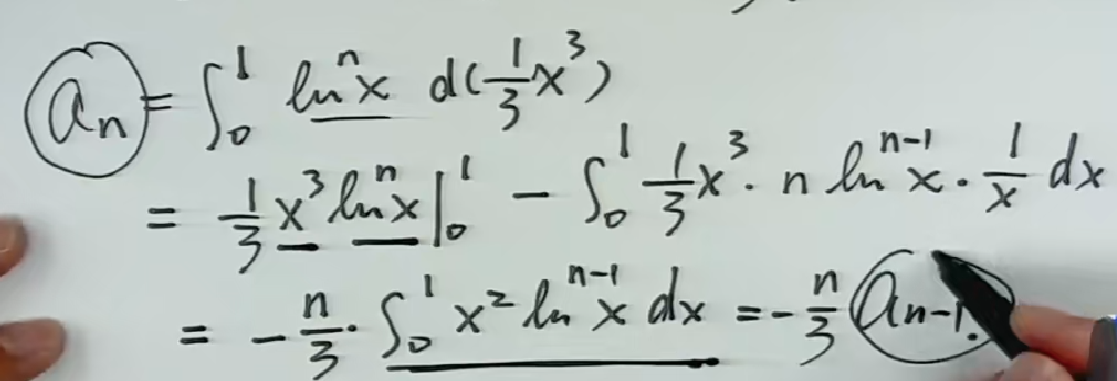 aₙ = ∫₀¹ lnⁿx d(⅓x³)
= ⅓x³lnⁿx|₀¹ − ∫₀¹ ⅓x³ · n lnⁿ⁻¹x · 1/x dx
= − n/3 · ∫₀¹ x² lnⁿ⁻¹x dx = − n/3 aₙ₋₁.